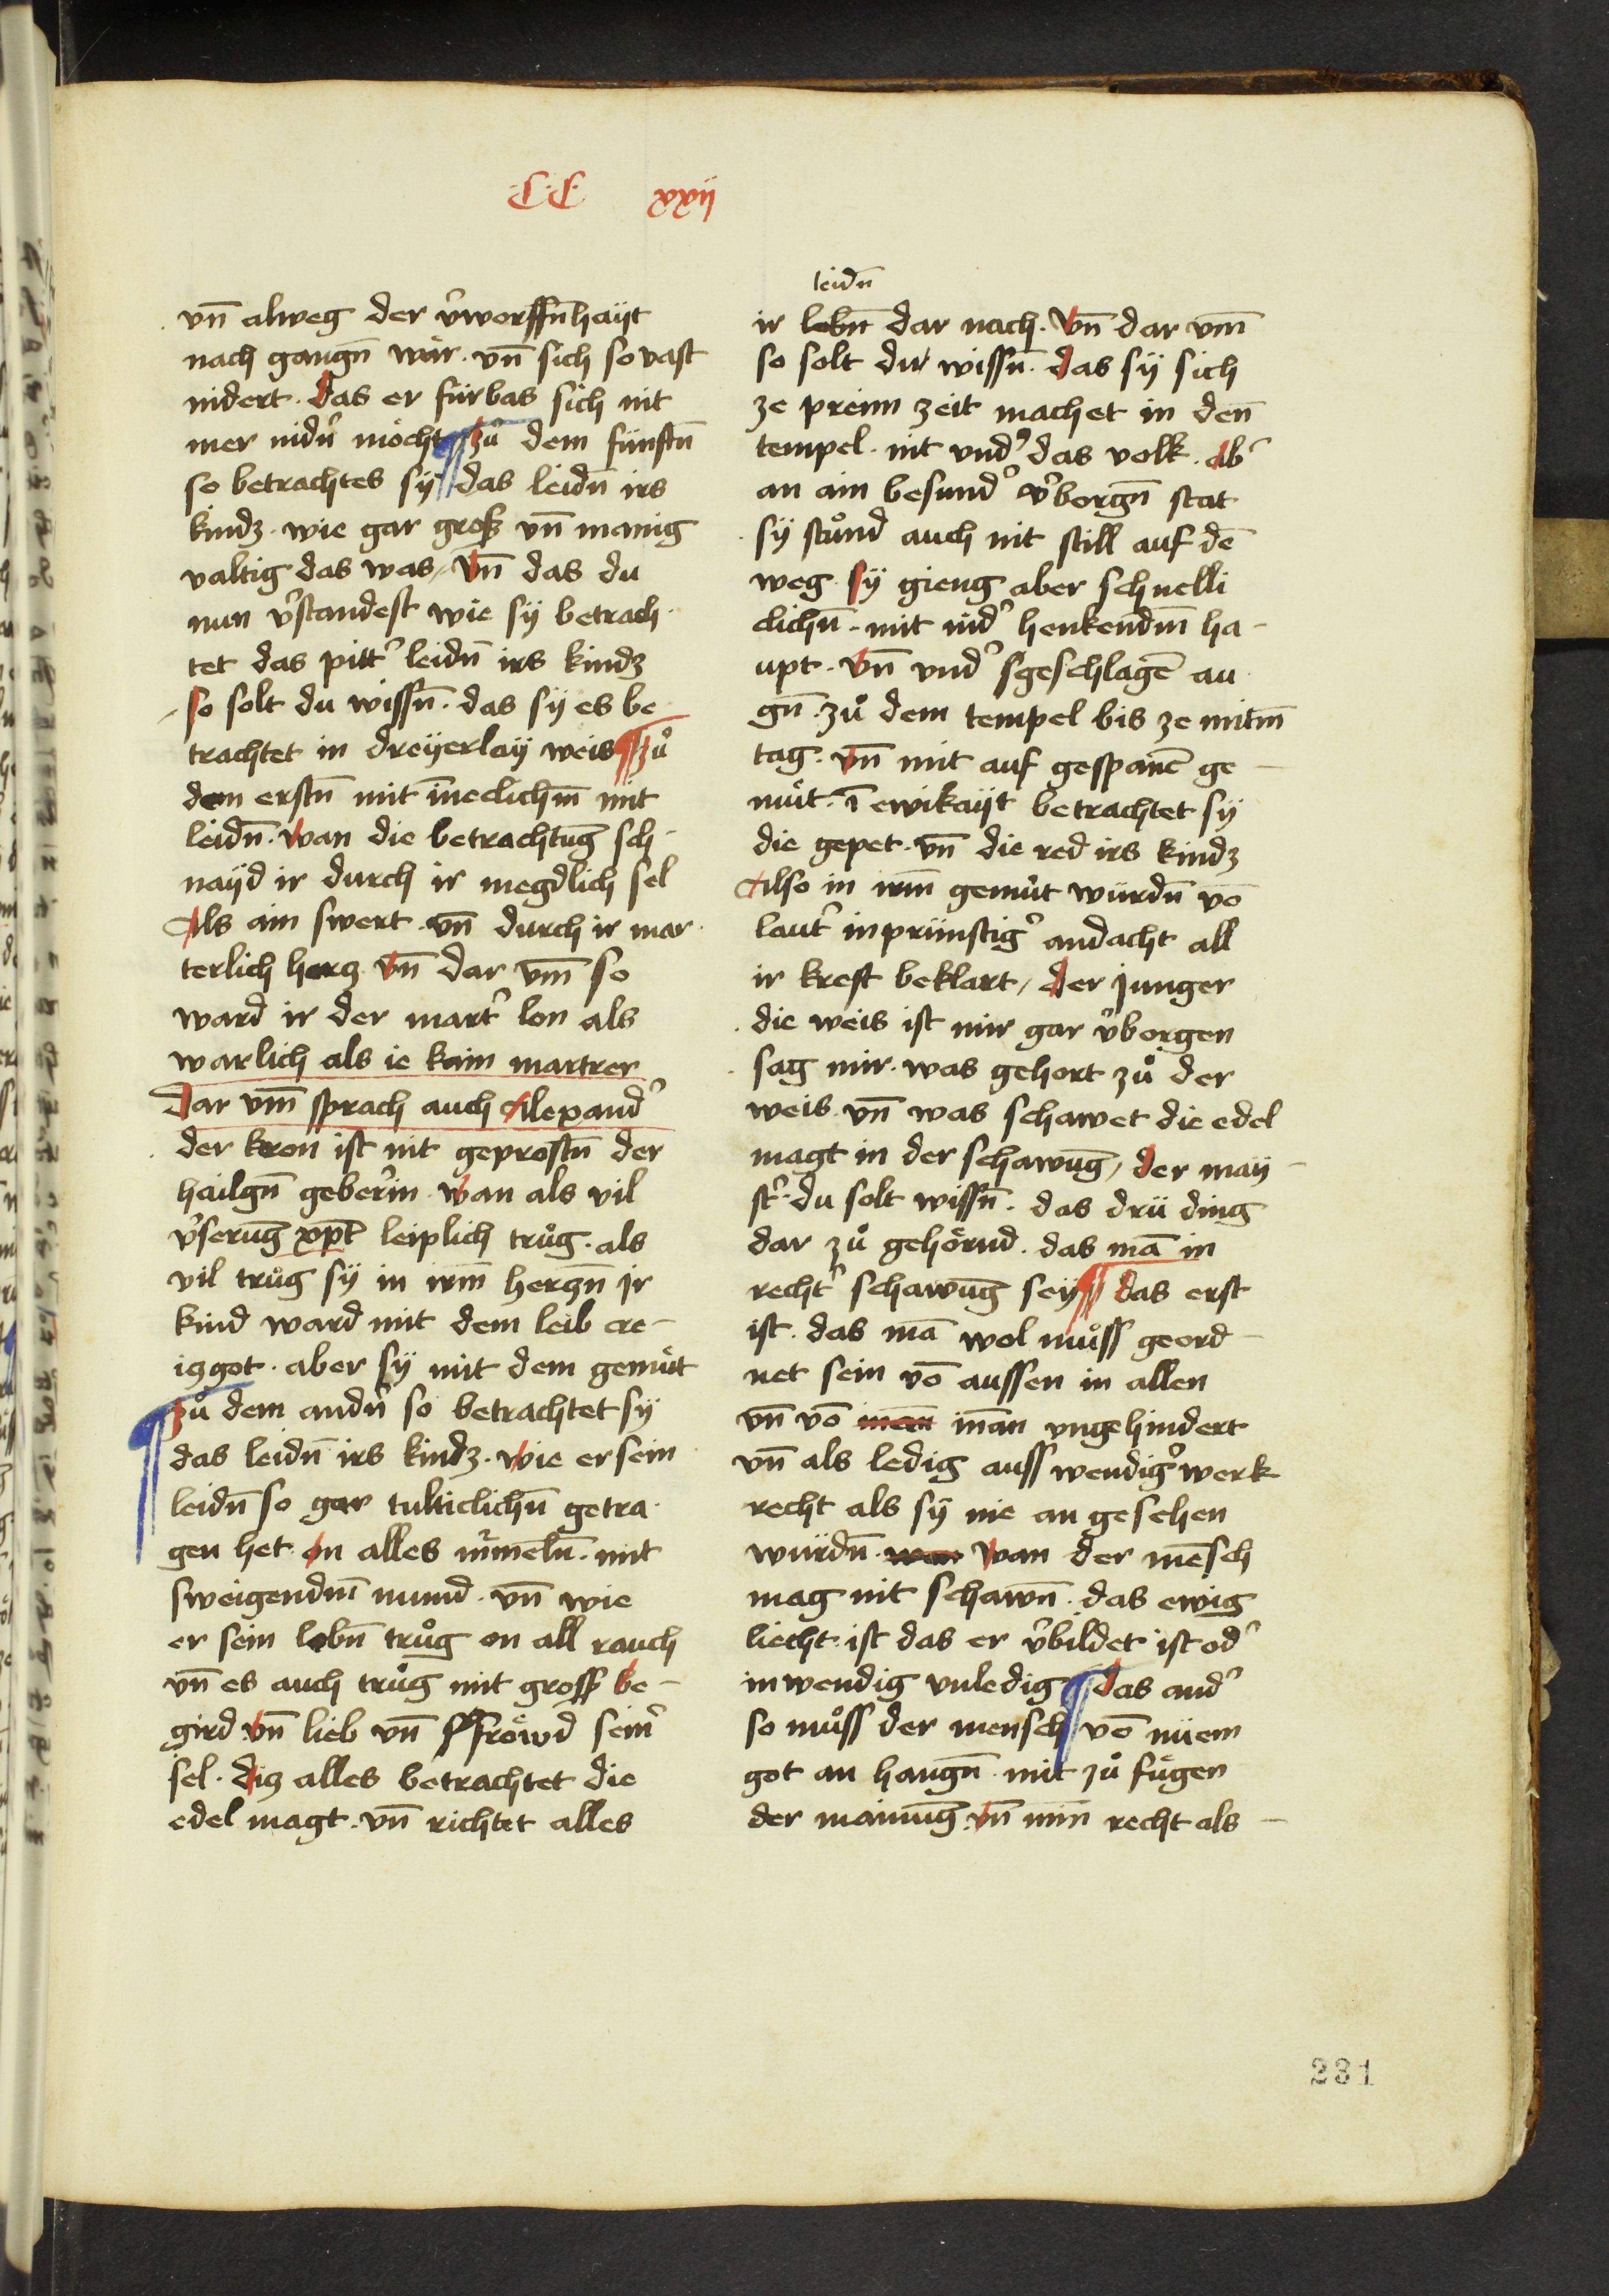 ·C·C· xxij
vn̄ alweg der v̓worffn̄hayt
nach gangn̄ wär · vn̄ sich so vast
nidert · das er fürbas sich nit
mer nidn̓ möcht ¶ zů dem fünftn̄
so betrachtes sÿ das leidn̄ irs
kindz · wie gar groß vn̄ manig
valtig das was / vn̄ das du
nun v̓standest wie sÿ betrach
tet das pitt̓ leidn̄ irs kindz
so solt du wissn̄ · das sÿ es be
trachtet in dreÿerlaÿ weis ¶ zů
dem erstn̄ mit in̄eclichm̄ mit
leidn̄ · wan die betrachtūg sch
naÿd ir durch ir megdlich sel
Als ain swert · vn̄ durch ir mar
terlich herz · vn̄ dar vm̄ so
ward ir der mart̓ lon als
warlich als ie kain martrer
Dar vm̄ sprach auch Alexand̓
der kron ist nit geprostn̄ der
hailgn̄ geberin̓ · wan als vil
v̓serūg xp̄t leiplich trůg · als
vil trůg sÿ in irm̄ herzn̄ jr
kind ward mit dem leib cre-
izgot · aber sÿ mit dem gemüt
¶ zů dem andn̓ so betrachtet sÿ
das leidn̄ irs kindz · wie er sein
leidn̄ so gar tulticlichn̄ getra
gen het · on alles mürmeln̄ · mit
sweigendm̄ mund · vn̄ wie
er sein lebn̄ trůg on all rauch
vn̄ es auch trůg mit gross be-
gird vn̄ lieb vn̄ ffröwd sein̓
sel · diz alles betrachtet die
edel magt · vn̄ richtet alles
leidn̄
ir lebn̄ dar nach · vn̄ dar vm̄
so solt du wissn̄ · das sÿ sich
ze preim zeit machet in den̄
tempel · nit vnd̓ das volk · ab̓
an ain besund̓ v̓borgn̄ stat
sÿ stůnd auch nit still auf dē
weg · sÿ gieng aber schnelli
clichn̄ · mit nid̓ henkendm̄ ha-
upt · vn̄ vnd̓ sgeschlagē au
gn̄ · zů dem tempel bis ze mitm̄
tag · vn̄ mit auf gespanē ge-
müt · ī ewikaÿt betrachtet sÿ
die gepet · vn̄ die red irs kindz
Also in irm̄ gemüt würdn̄ vō
laut̓ inprünstig̓ andacht all
ir kreft beklart / der junger
die weis ist mir gar v̓borgen
sag mir · was gehort zů der
weis · vn̄ was schawet die edel
magt in der schawūg / der maÿ-
st̓ · du solt wissn̄ · das drü ding
dar zů gehörnd · das mā in
recht̓ schawūg seÿ ¶ das erst
ist · das mā wol můss geord-
net sein vō aussen in allen
vn̄ vō inan in̄an vngehindert
vn̄ als ledig auss wendig̓ werk
recht als sÿ nie an gesehen
würdn̄ · wan wan der mēsch
mag nit schawn̄ · das ewig
liecht · ist das er v̓bildet ist od̓
inwendig vnledig ¶ das and̓
so můss der mensch vō nüem
got an hangn̄ · mit zů fügen
der mainūg · vn̄ min̄ recht als -
231